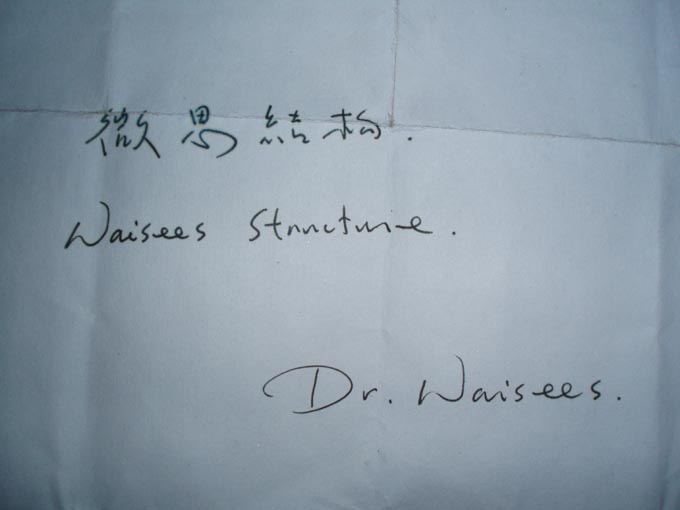 微思結构.
Waisees Structure.
Dr. Waisees.